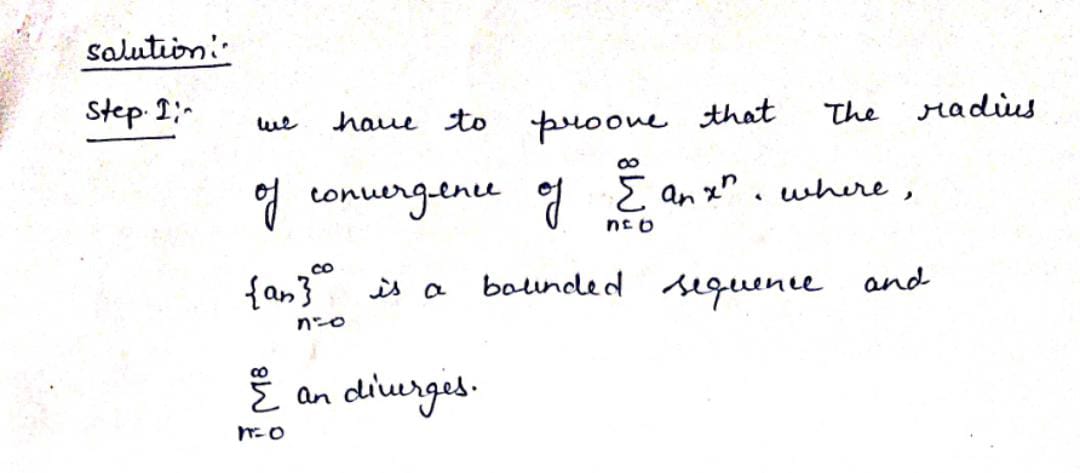 solution:-
Step. I:- we have to proove that The radius
of convergence of ∞Σn=0 an xⁿ. where,
{an}∞n=0 is a bounded sequence and
∞Σn=0 an diverges.